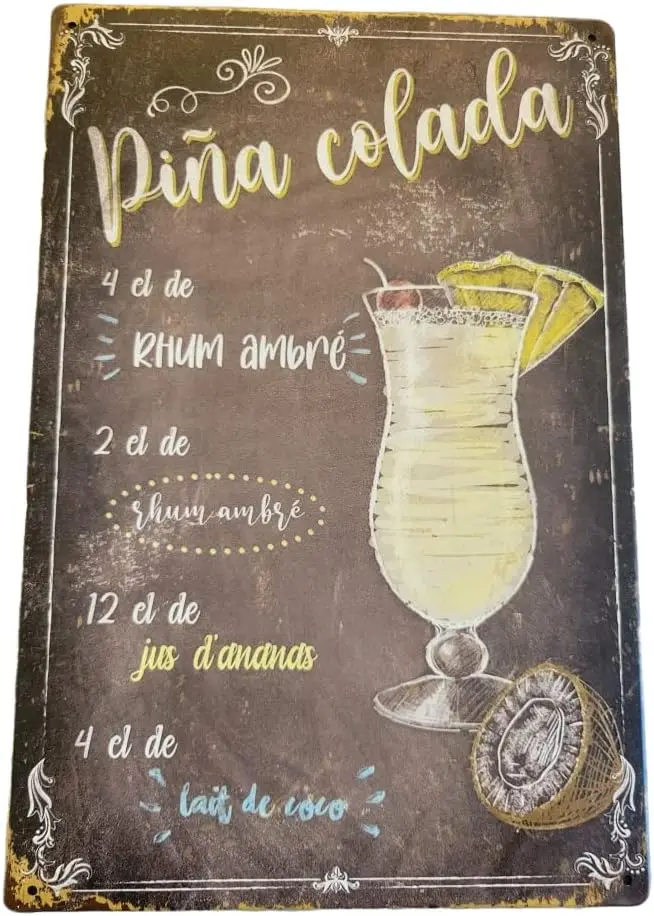 Piña colada
4 cl de
RHUM ambré
2 cl de
rhum ambré
12 cl de
jus d'ananas
4 cl de
lait de coco